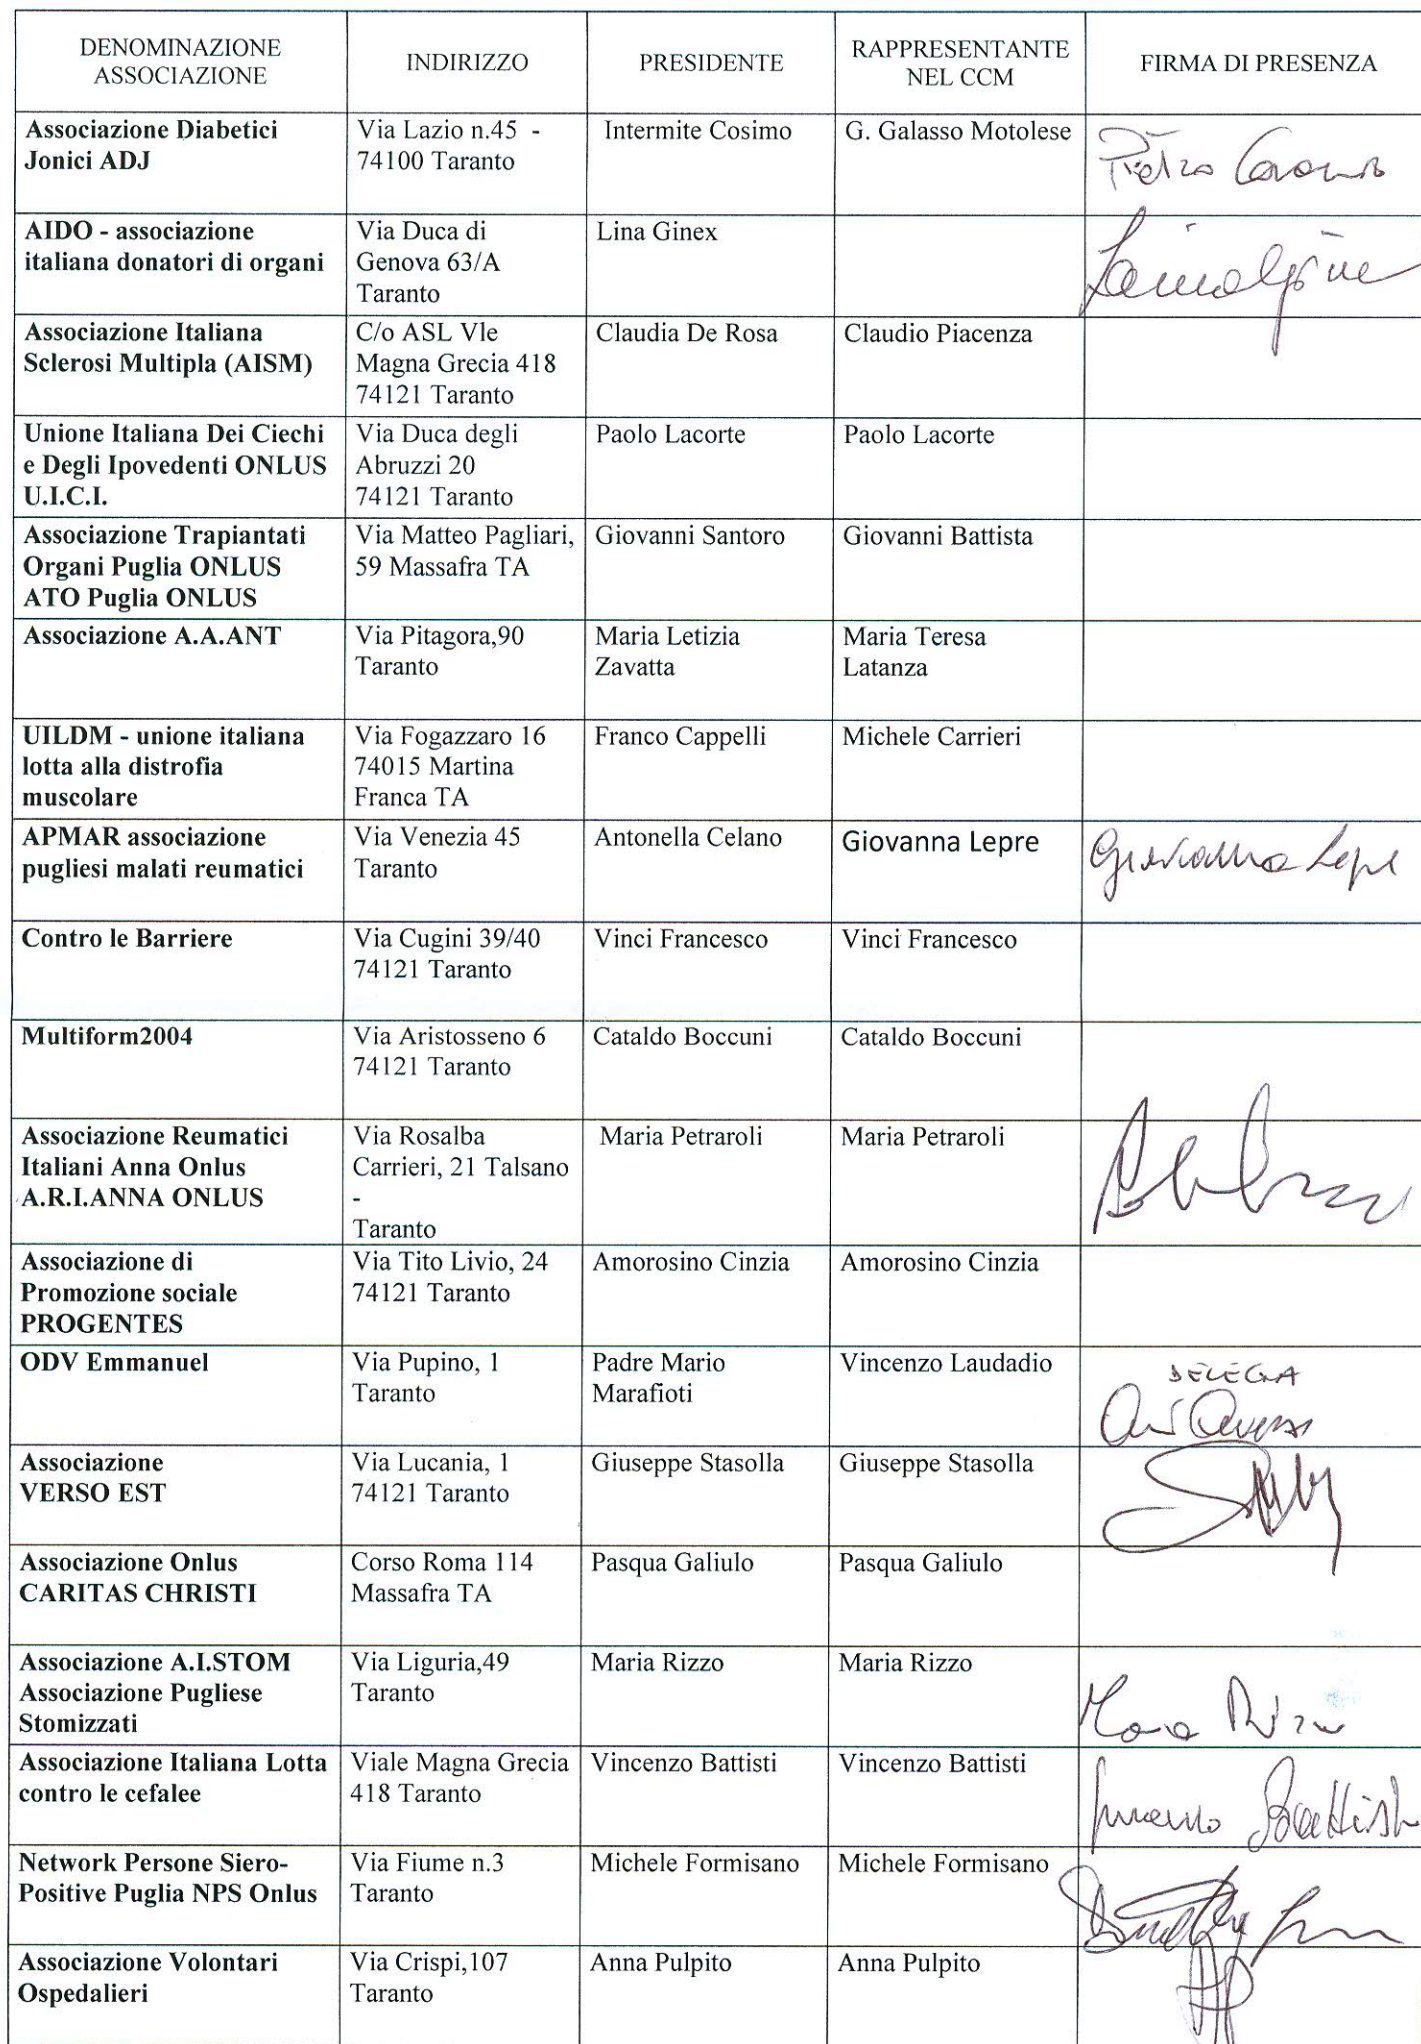 DENOMINAZIONE
ASSOCIAZIONE
INDIRIZZO
PRESIDENTE
RAPPRESENTANTE
NEL CCM
FIRMA DI PRESENZA
Associazione Diabetici
Jonici ADJ
Via Lazio n.45 -
74100 Taranto
Intermite Cosimo
G. Galasso Motolese
Pietro
AIDO - associazione
italiana donatori di organi
Via Duca di
Genova 63/A
Taranto
Lina Ginex
Associazione Italiana
Sclerosi Multipla (AISM)
C/o ASL Vle
Magna Grecia 418
74121 Taranto
Claudia De Rosa
Claudio Piacenza
Unione Italiana Dei Ciechi
e Degli Ipovedenti ONLUS
U.I.C.I.
Via Duca degli
Abruzzi 20
74121 Taranto
Paolo Lacorte
Paolo Lacorte
Associazione Trapiantati
Organi Puglia ONLUS
ATO Puglia ONLUS
Via Matteo Pagliari,
59 Massafra TA
Giovanni Santoro
Giovanni Battista
Associazione A.A.ANT
Via Pitagora,90
Taranto
Maria Letizia
Zavatta
Maria Teresa
Latanza
UILDM - unione italiana
lotta alla distrofia
muscolare
Via Fogazzaro 16
74015 Martina
Franca TA
Franco Cappelli
Michele Carrieri
APMAR associazione
pugliesi malati reumatici
Via Venezia 45
Taranto
Antonella Celano
Giovanna Lepre
Giovanna Lepre
Contro le Barriere
Via Cugini 39/40
74121 Taranto
Vinci Francesco
Vinci Francesco
Multiform2004
Via Aristosseno 6
74121 Taranto
Cataldo Boccuni
Cataldo Boccuni
Associazione Reumatici
Italiani Anna Onlus
A.R.I.ANNA ONLUS
Via Rosalba
Carrieri, 21 Talsano
-
Taranto
Maria Petraroli
Maria Petraroli
Associazione di
Promozione sociale
PROGENTES
Via Tito Livio, 24
74121 Taranto
Amorosino Cinzia
Amorosino Cinzia
ODV Emmanuel
Via Pupino, 1
Taranto
Padre Mario
Marafioti
Vincenzo Laudadio
DELEGA
Associazione
VERSO EST
Via Lucania, 1
74121 Taranto
Giuseppe Stasolla
Giuseppe Stasolla
Associazione Onlus
CARITAS CHRISTI
Corso Roma 114
Massafra TA
Pasqua Galiulo
Pasqua Galiulo
Associazione A.I.STOM
Associazione Pugliese
Stomizzati
Via Liguria,49
Taranto
Maria Rizzo
Maria Rizzo
Maria Rizzo
Associazione Italiana Lotta
contro le cefalee
Viale Magna Grecia
418 Taranto
Vincenzo Battisti
Vincenzo Battisti
Vincenzo Battisti
Network Persone Siero-
Positive Puglia NPS Onlus
Via Fiume n.3
Taranto
Michele Formisano
Michele Formisano
Associazione Volontari
Ospedalieri
Via Crispi,107
Taranto
Anna Pulpito
Anna Pulpito